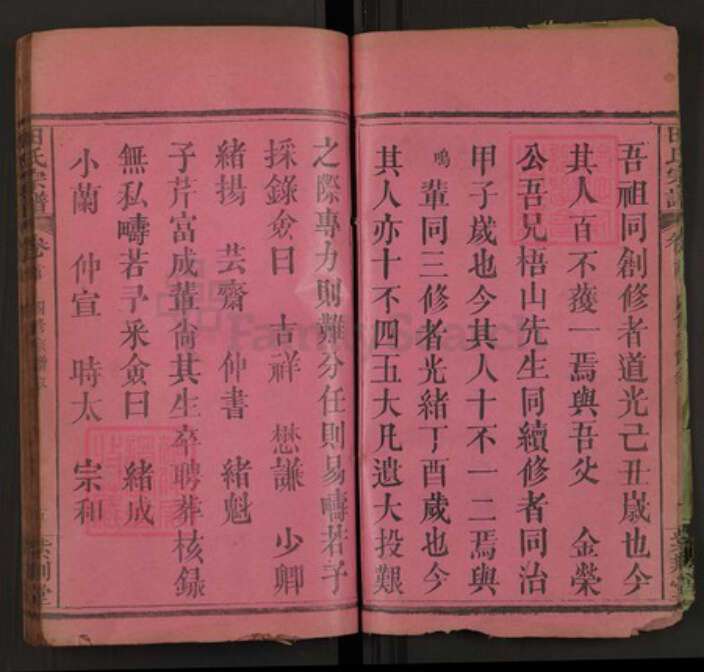 吾祖同創修者道光己丑嵗也今
其人百不獲一焉與吾父 金榮
公吾兄梧山先生同續修者同治
甲子嵗也今其人十不一二焉與
鳴 輩同三修者光緒丁酉嵗也今
其人亦十不四五大凡遺大投艱
之際專力則難分任則易疇若子
採錄僉曰 吉祥 懋謙 少卿
緒揚 芸齋 仲書 緒魁
子芹富成輩尙其生卒聘葬核録
無私疇若予采僉曰 緒成
小蘭 仲宣 時太 宗和
田氏宗譜 卷首
紫荆堂
FamilySearch